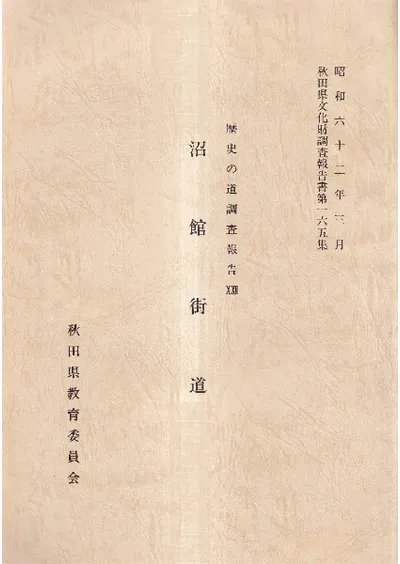 昭和六十二年三月
秋田県文化財調査報告書第一六五集
歴史の道調査報告
沼館街道
秋田県教育委員会